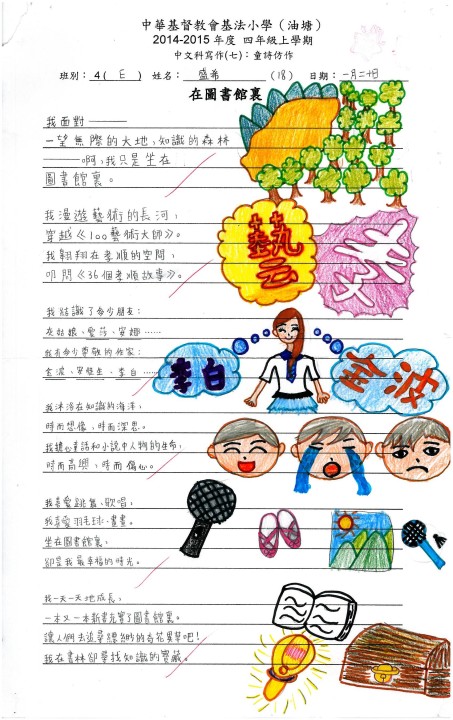 中華基督教會基法小學（油塘）
2014-2015 年度 四年級上學期
中文科寫作(七)：童詩仿作
班別： 4( E ) 姓名： 盛希 (18) 日期：一月二十日
在圖書館裏
我面對———
一望無際的大地，知識的森林
———啊，我只是坐在
圖書館裏。
我漫遊藝術的長河，
穿越《100藝術大師》。
我翱翔在孝順的空間，
叩問《36個孝順故事》。
藝
我結識了多少朋友：
灰姑娘、愛莎、安娜……
我有多少尊敬的作家：
金波、李白……
李白
金波
我沐浴在知識的海洋，
時而想像，時而深思。
我擔心童話和小說中人物的生命，
時而高興，時而傷心。
我喜愛跳舞、歌唱，
我喜愛羽毛球、畫畫。
坐在圖書館裏，
卻是我最幸福的時光。
我一天一天地成長，
一本又一本新書充實了圖書館裏。
讓人們去追尋繽紛的奇花異草吧！
我在書林卻尋找知識的寶藏。